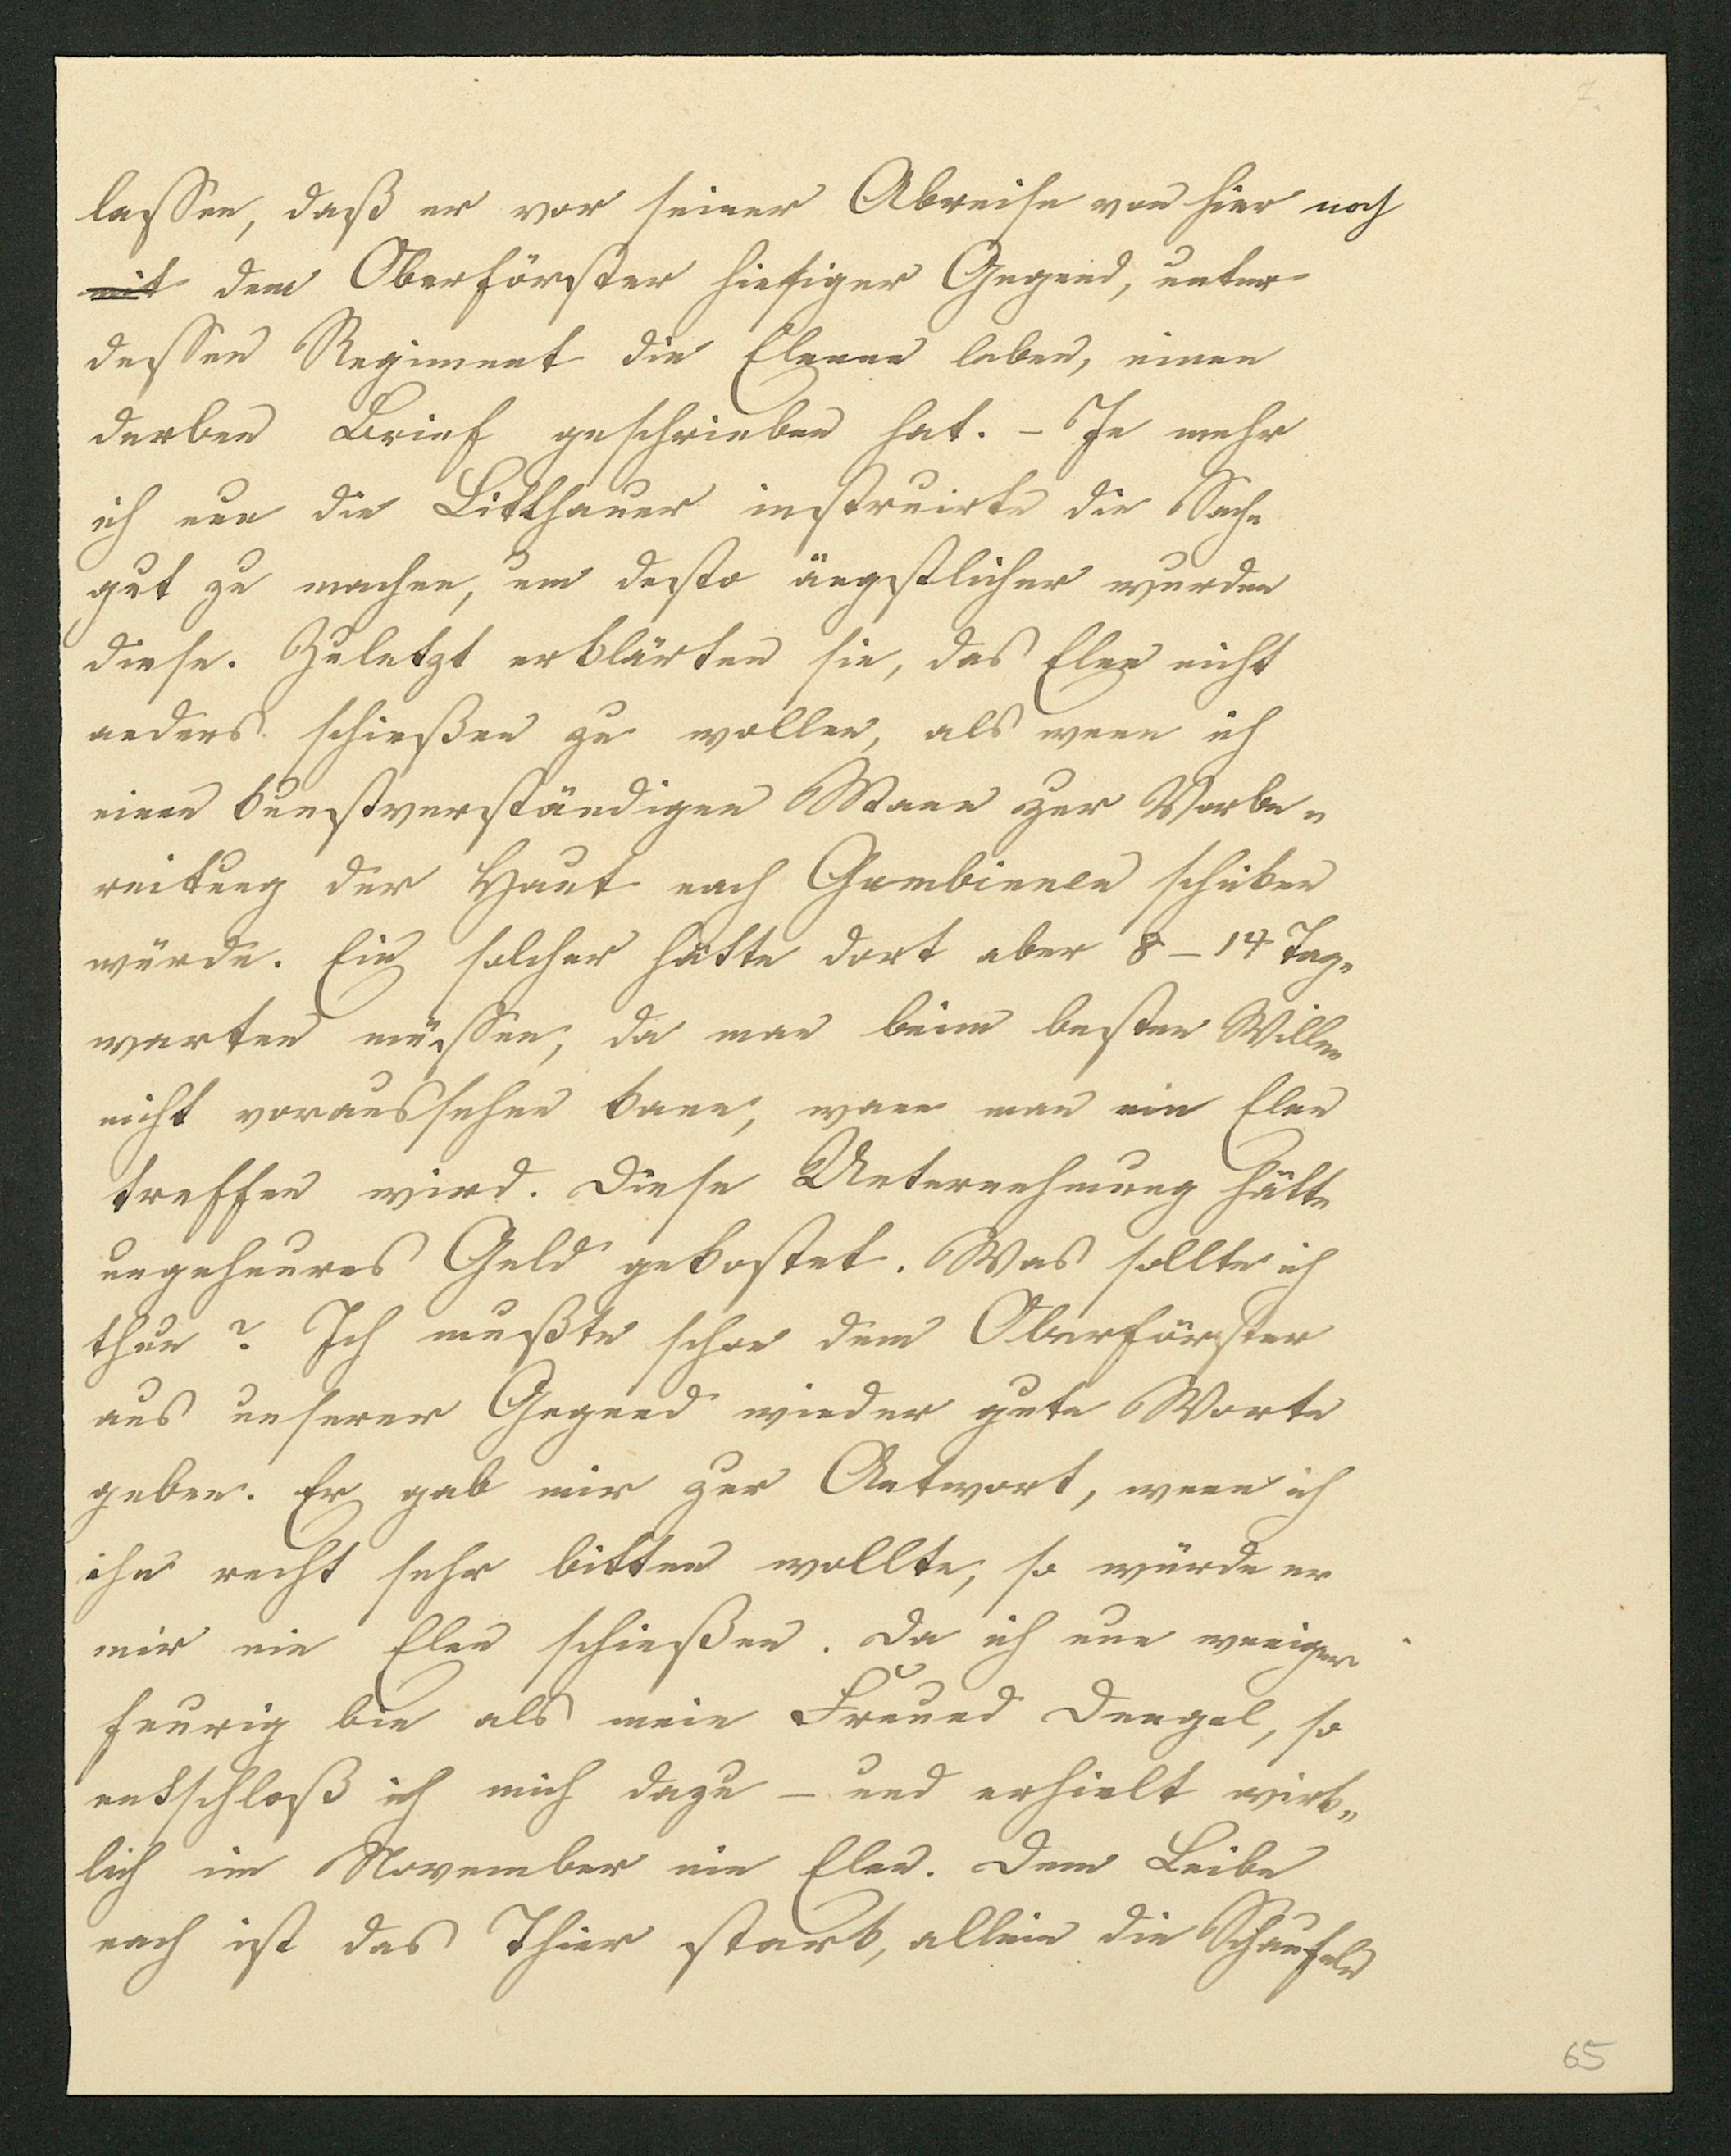 7.
lassen, daß er vor seiner Abreise von hier noch
mit dem Oberförster hiesiger Gegend, unter
dessen Regiment die Elenne leben, einen
derben Brief geschrieben hat. – Je mehr
ich nun die Litthauer instruirte die Sache
gut zu machen, um desto ängstlicher wurden
diese. Zuletzt erklärten sie, das Elen nicht
anders schießen zu wollen, als wenn ich
einen kunstverständigen Mann zur Vorbe-
reitung der Haut nach Gumbinnen schicken
würde. Ein solcher hätte dort aber 8–14 Tage
warten müssen, da man beim besten Willen
nicht voraussehen kann, wann man ein Elen
treffen wird. Diese Unternehmung hätte
ungeheures Geld gekostet. Was sollte ich
thun? Ich mußte schon dem Oberförster
aus unserer Gegend wieder gute Worte
geben. Er gab mir zur Antwort, wenn ich
ihn recht sehr bitten wollte, so würde er
mir ein Elen schießen. Da ich nun weniger
feurig bin als mein Freund Dengel, so
entschloß ich mich dazu – und erhielt wirk-
lich im November ein Elen. Dem Leibe
nach ist das Thier stark, allein die Schaufeln
65